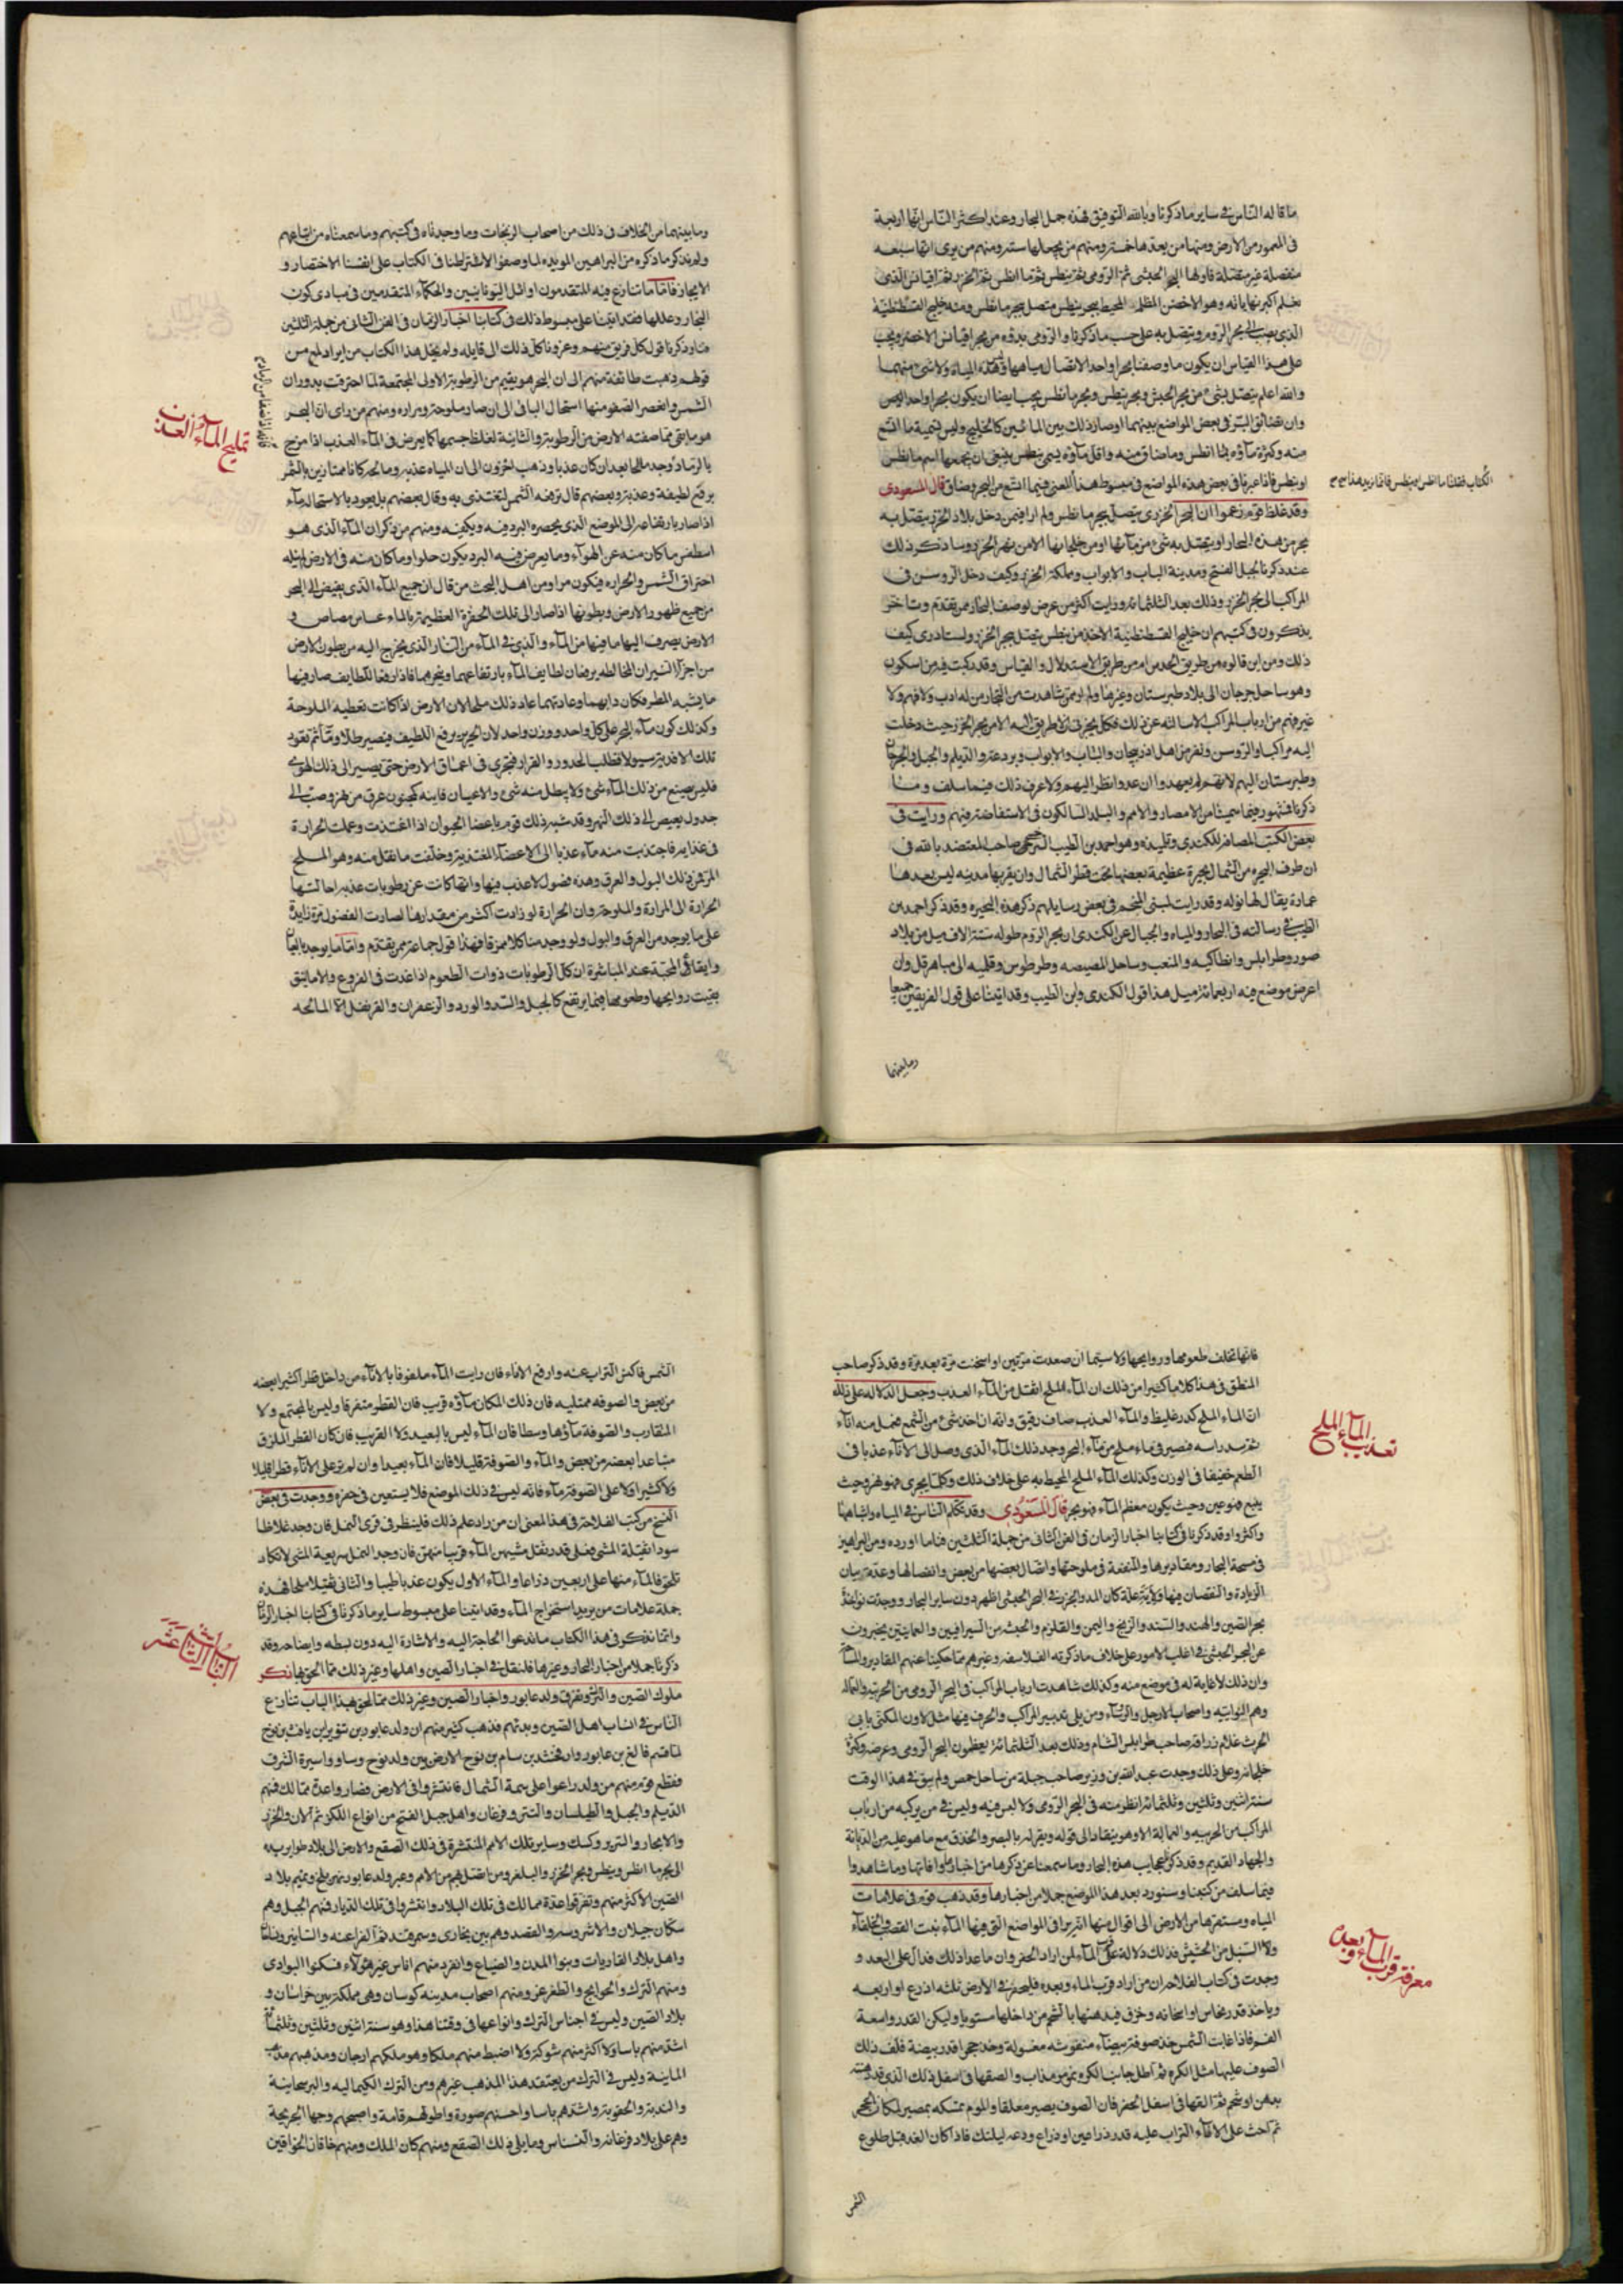 ما قاله الناس في ساير ما ذكرنا وبالله التوفيق فهذه جمل البحار وعند اكثر الناس انها اربعة
في المعمور من الارض ومنها من يعدها خمسة ومنهم من يجعلها ستة ومنهم من يرى انها سبعه
منفصلة غير متصلة فاولها البحر الحبشى ثم الرومى ثم نيطس ثم ما انطس ثم الخزر ثم اقيانس الذى
يعلم اكبر نهاياته وهو الاخضر المظلم المحيط وبحر نيطس متصل ببحر ما نطس ومنه خليج القسطنطنية
الذى يصب الى بحر الروم ويتصل به على حسب ما ذكرنا والرومى بدؤه من بحر اقيانس الاخضر ويجب
على هذا القياس ان يكون ما وصفنا بحرا واحدا لاتصال مياهها وهذه المياه ولا شئ منها
والله اعلم يتصل بشئ من بحر الحبش وبحر نيطس وبحر ما نطس يجب ايضا ان يكون بحرا واحدا
وان تضائق البر في بعض المواضع بينهما او صار ذلك بين المائين كالخليج وليس تسمية ما اتسع
منه وكثرة مآؤه بما انطس وما ضاق منه وقل مآؤه بنيطس ينبغى ان يجمعها اسم ما نطس
او نيطس فاذا عبرنا في بعض هذه المواضع في مبسوط هذا المعنى فيما اتسع من البحر وضاق قال المسعودى
الكتاب فقلنا ما انطس او نيطس فانما نريد هذا
وقد غلط قوم زعموا ان البحر الخزرى يتصل ببحر ما نطس ولم ار فيمن دخل بلاد الخزر يتصل به
بحر من هذه البحار او يتصل به شئ من مآئها او من خلجانها الا من نهر الخزر وسا ذكر ذلك
عند ذكرنا لجبل الفتح ومدينة الباب والابواب ومملكة الخزر وكيف دخل الروس في
المراكب الى بحر الخزر وذلك بعد الثلثمائه ورايت اكثر من عرض لوصف البحار ممن تقدم وتاخر
يذكرون في كتبهم ان خليج القسطنطنية الاخذ من نيطس يتصل ببحر الخزر ولست ادرى كيف
ذلك ومن اين قالوه من طريق الحدس ام من طريق الاستدلال والقياس وقد ركبت فيه من اسكون
وهو ساحل جرجان الى بلاد طبرستان وغيرها ولم ار ممن شاهدت من التجار من له ادب ولا فهم ولا
غيرهم من ارباب المراكب الا سالته عن ذلك فكل يخبرنى ان لا طريق اليه الا من بحر الخزر حيث دخلت
اليه مراكب الروس ونفر من اهل اذربيجان والباب والابواب وبردعة والديلم والجبل والجرجان
وطبرستان اليهم لانهم لم يعهدوا ان عدوا نظر اليهم ولا عرف ذلك فيما سلف وما
ذكرنا فشهور فيما سميناه من الامصار والامم والبلد السالكون في الاستفاضة فيهم ورايت في
بعض الكتب المضافة للكندى وتلميذه وهو احمد بن الطيب السرخسى صاحب المعتضد بالله في
ان طرف البحر من الشمال بحيرة عظيمة بعضها تحت قطر الشمال وان بقربها مدينه ليس بعدها
عمارة يقال لها توله وقد رايت لبنى المنجم في بعض رسايلهم ذكر هذه البحيره وقد ذكر احمد بن
الطيب في رسالته في البحار والمياه والجبال عن الكندى ان بحر الروم طوله ستة الاف ميل من بلاد
صور وطرابلس وانطاكيه والمثقب وساحل المصيصه وطرطوس وقلميه الى منار هرقل وان
اعرض موضع فيه اربعمائة ميل هذا قول الكندى وابن الطيب وقد اتينا على قول الفريقين جميعا
وما بينهما
وما بينهما من الخلاف في ذلك من اصحاب الزيجات وما وجدناه في كتبهم وما سمعناه من اتباعهم
ولم نذكر ما ذكره من البراهين المويده لما وصفوا الاشتراطنا في الكتاب على انفسنا الاختصار و
الايجاز فاما ما تنازع فيه المتقدمون اوائل اليونانيين والحكماء المتقدمين في مبادى كون
البحار وعللها فقد اتينا على مبسوط ذلك في كتابنا اخبار الزمان في الفن الثانى من جملة الثلثين
فنا وذكرنا قول كل فريق منهم وعزونا كل ذلك الى قايله ولم نخل هذا الكتاب من ايراد لمع من
قولهم ذهبت طائفة منهم الى ان البحر هو بقيم من الرطوبة الاولى المجتمعة لما احترقت بدوران
الشمس وانعصر الصفو منها استحال الباقى الى ان صار ملوحة ومراره ومنهم من راى ان البحر
هو ما بقى مما صفته الارض من الرطوبة والثانية لغلظ جسمها كما يعرض في المآء العذب اذا مزج
بالرماد وجد مالحا بعد ان كان عذبا وذهب اخرون الى ان المياه عذبه ومالحه كانا ممتازين فالشمس
تمليح المآء العذب
ترفع لطيفه وعذبه وبعضهم قال ترفعه الشمس لتغتذى به وقال بعضهم بل يعود بالاستحاله مآء
اذا صار بارتفاعه الى الموضع الذى يحصره البرد فيه ويكيفه ومنهم من ذكر ان المآء الذى هو
اسطقس ما كان منه عن الهوآء وما يعرض فيه البرد يكون حلوا وما كان منه في الارض لما يناله
احتراق الشمس والحراره فيكون مرا ومن اهل البحث من قال ان جميع المآء الذى يفيض الى البحر
من جميع ظهور الارض وبطونها اذا صار الى تلك الحفرة العظيمة
الارض يصرف اليها ما فيها من المآء والذى في المآء من النار الذى يخرج اليه من بطون الارض
من اجزآء النيران المخالطه يرفعان لطايف المآء بارتفاعهما وبخرهما فاذا رفعا اللطايف صار فيها
ما يشبه المطر فكان دابهما وعادتهما عاد ذلك ملحا لان الارض اذا كانت تعطيه الملوحة
وكذلك كون مآء البحر على كل واحد ووزن واحد لان الحر ين يرفع اللطيف فيصير طلا ومآء ثم تعود
تلك الانديه سيولا فتطلب الحدور والقرار فتجرى في اعماق الارض حتى يصير الى ذلك الهوى
فليس يضيع من ذلك المآء شئ ولا يبطل منه شئ والاعيان قاينه كمجنون غرف من نهر وصب الى
جدول يفيض الى ذلك النهر وقد شبه ذلك قوم باعضا الحيوان اذا اغتذت وعملت الحرارة
في غذايه فاجتذبت منه مآء عذبا الى الاعضآء المغتذية وخلفت ما ثقل منه وهو الملح
المر فمن ذلك البول والعرق وهذه فضول لا عذب فيها وانما كانت عن رطوبات عذبه احالتها
الحرارة الى المرارة والملوحة وان الحرارة لو زادت اكثر من مقدارها لصارت الفضول مرة زايدة
على ما يوجد من العرق والبول ولو وجد منا كل ممزقا فهذا قول جماعة ممن تقدم واما ما يوجد بالعيان
وايقاع المحنة عند المباشرة ان كل الرطوبات ذوات الطعوم اذا غدت في القرع والانابيق
بقيت روايحها وطعومها فيما يرتفع كالخل والنبيذ والورد والزعفران والقرنفل الا المالحه
فانها تخلف طعومها وروايحها ولا سيما ان صعدت مرتين او اسخنت مرة بعد مرة وقد ذكر صاحب
المنطق في هذا كلاما كثيرا من ذلك ان المآء الملح اثقل من المآء العذب وجعل الدلاله على ذلك
ان المآء الملح كدر غليظ والمآء العذب صاف رقيق وانه ان اخذ شئ من الشمع فعمل منه انآء
ثم سد راسه فصير في مآء ملح من مآء البحر وجد ذلك المآء الذى وصل الى الانآء عذبا في
الطعم خفيفا في الوزن وكذلك المآء الملح المحيط به على خلاف ذلك وكل مآء يجرى فهو نهر وحيث
تعذب المآء الملح
ينبع فهو عين وحيث يكون معظم المآء فهو بحر قال المسعودي وقد تكلم الناس في المياه واشباهها
واكثروا وقد ذكرنا في كتابنا اخبار الزمان في الفن الثانى من جملة الثلثين فنا ما اورده من البراهين
في مساحة البحار ومقاديرها والمنفعة في ملوحتها واتصال بعضها من بعض وانفصالها وعدم بيان
الزيادة والنقصان فيها ولاية علة كان المد والجزر في البحر الحبشى اظهر دون ساير البحار ووجدت نواخذة
بحر الصين والهند والسند والزنج واليمن والقلزم والحبشه من السيرافيين والعمانيين يخبرون
عن البحر الحبشى في اغلب الامور على خلاف ما ذكرته الفلاسفه وغيرهم مما حكينا عنهم المقادير والمساحة
وان ذلك لا غاية له في موضع منه وكذلك شاهدت ارباب المراكب في البحر الرومى من الحربيه والعماله
وهم النواتيه واصحاب الارجل والروسآء ومن يلى تدبير المراكب والحرب فيها مثل لاون المكنى بابى
الحرث غلام زرافة صاحب طرابلس الشام وذلك بعد الثلثمائة يعظمون البحر الرومى وعرضه وكثرة
خلجانه وعلى ذلك وجدت عبد الله بن وزير صاحب جبلة من ساحل حمص ولم يبق في هذا الوقت
سنة اثنين وثلثين وثلثمائة انظر منه في البحر الرومى ولا اسن فيه وليس في من يركبه من ارباب
المراكب من الحربيه والعمالة الا وهو ينقاد الى قوله ويقر له بالبصر والحذق مع ما هو عليه من الديانة
والجهاد القديم وقد ذكرنا عجايب هذه البحار وما سمعنا عن ذكرها من اخبارها وافاتها وما شاهدوا
فيما سلف من كتبنا وسنورد بعد هذا الموضع جملا من اخبارها وقد ذهب قوم في علامات
المياه ومستقرها من الارض الى اقوال منها ان يرا في المواضع التى فيها المآء نبت القصب والحلفآء
ولا السبل من الحشيش فذلك دلالة على قرب المآء لمن اراد الحفر وان ما عدا ذلك فدال على البعد و
معرفة قرب المآء وبعده
وجدت في كتاب الفلاحة ان من اراد قرب المآء وبعده فليحفر في الارض ثلثه اذرع او اربعه
وياخذ قدر نحاس او اسخانه وخزف فيدهنها بالشحم من داخلها مستويا وليكن القدر واسعة
الفم فاذا غابت الشمس خذ صوفة بيضآء منفوشه مغسولة وخذ حجرا قدر بيضة فلف ذلك
الصوف عليها مثل الكره ثم اطل جانب الكره بموم مذاب والصقها في اسفل ذلك الذى قد دهنته
بدهن او شحم ثم القها في اسفل الحفر فان الصوف يصير معلقا والموم يمسكه بمصير لمكان الحجر
ثم احث على الانآء التراب عليه قدر ذراعين او ذراع ودعه ليلتك فاذا كان الغد قبل طلوع
الشمس
الشمس فاكشف التراب عنه وارفع الانآء فان رايت المآء ملزوقا بالانآء من داخل قطرا كثيرا بعضه
من بعض والصوفه ممتليه فان ذلك المكان مآؤه قريب فان القطر متفرقا وليس بالمجتمع ولا
المتقارب والصوفة مآؤها وسطا فان المآء ليس بالبعيد ولا القريب فان كان القطر الملتزق
متباعدا بعضه من بعض والمآء والصوفة قليلا فان المآء بعيد وان لم تر على الانآء قطرا قليلا
ولا كثيرا ولا على الصوفة مآء فانه ليس في ذلك الموضع فلا يستعين في حفره ووجدت في بعض
النسخ من كتب الفلاحة في هذا المعنى ان من اراد علم ذلك فلينظر في قرى النمل فان وجد غلاظا
سودا ثقيلة المشى فعلى قدر ثقل مشيهن المآء قريبا منهن فان وجد النمل سريعة المشى لا تكاد
تلحق فالمآء منها على اربعين ذراعا والمآء الاول يكون عذبا طيبا والثانى ثقيلا ملحا فهذه
جملة علامات من يريد استخراج المآء وقد اتينا على مبسوط ساير ما ذكرنا في كتابنا اخبار الزمان
وانما نذكر في هذا الكتاب ما تدعوا الحاجة اليه والاشارة اليه دون بسطه وايضاحه وقد
ذكرنا جملا من اخبار البحار وغيرها فلنقل في اخبار الصين واهلها وغير ذلك مما لحق بها ذكر
الباب الثالث عشر
ملوك الصين والترك وتفرق ولد عابور واخبار الصين وغير ذلك مما لحق بهذا الباب تنازع
الناس في انساب اهل الصين وبدئهم فذهب كثير منهم ان ولد عابور بن سويل بن يافث بن نوح
لما قسم فالغ بن عابور بن ارفخشد بن سام بن نوح الارض بين ولد نوح وساروا سيرة الشرف
فقطع قوم منهم من ولد راعوا على سمة الشمال فانتشروا في الارض فصاروا عدة ممالك فمنهم
الديلم والجيل والطيلسان والتتر وفرغان واهل جبل الفتح من انواع اللكز ثم الان والخزر
والابجار والسرير وكسك وساير تلك الامم المنتشرة في ذلك الصقع والارض الى بلاد طرابزنده
الى بحر ما انطس ونيطس وبحر الخزر والبلغر ومن اتصل بهم من الامم وعبر ولد عابور نهر بلخ ويمم بلاد
الصين الاكثر منهم وتفرقوا عدة ممالك في تلك البلاد وانتشروا في تلك الديار فمنهم الجبل وهم
سكان جيلان والاشروسنه والصغد وهم بين بخارى وسمرقند ثم الفراعنه والشاش
واهل بلاد الفاريات وبنوا المدن والضياع وانفرد منهم اناس غير هؤلآء فسكنوا البوادى
ومنهم الترك والخولج والطغرغز ومنهم اصحاب مدينه كوسان وهى مملكة بين خراسان و
بلاد الصين وليس في اجناس الترك وانواعها في وقتنا هذا وهو سنة اثنين وثلثين وثلثمائة
اشد منهم باسا ولا اكثر منهم شوكة ولا اضبط منهم ملكا وهو ملكهم ارجان ومذهبهم مذهب
المانية وليس في الترك من يعتقد هذا المذهب غيرهم ومن الترك الكيماليه والبرسحانية
والبديه والجغريه واشدهم باسا واحسنهم صورة واطولهم قامة واصبحهم وجها الخرلجية
وهم على بلاد فرغانه والشاش وما يلى ذلك الصقع ومنهم كان الملك ومنهم خاقان الخواقين